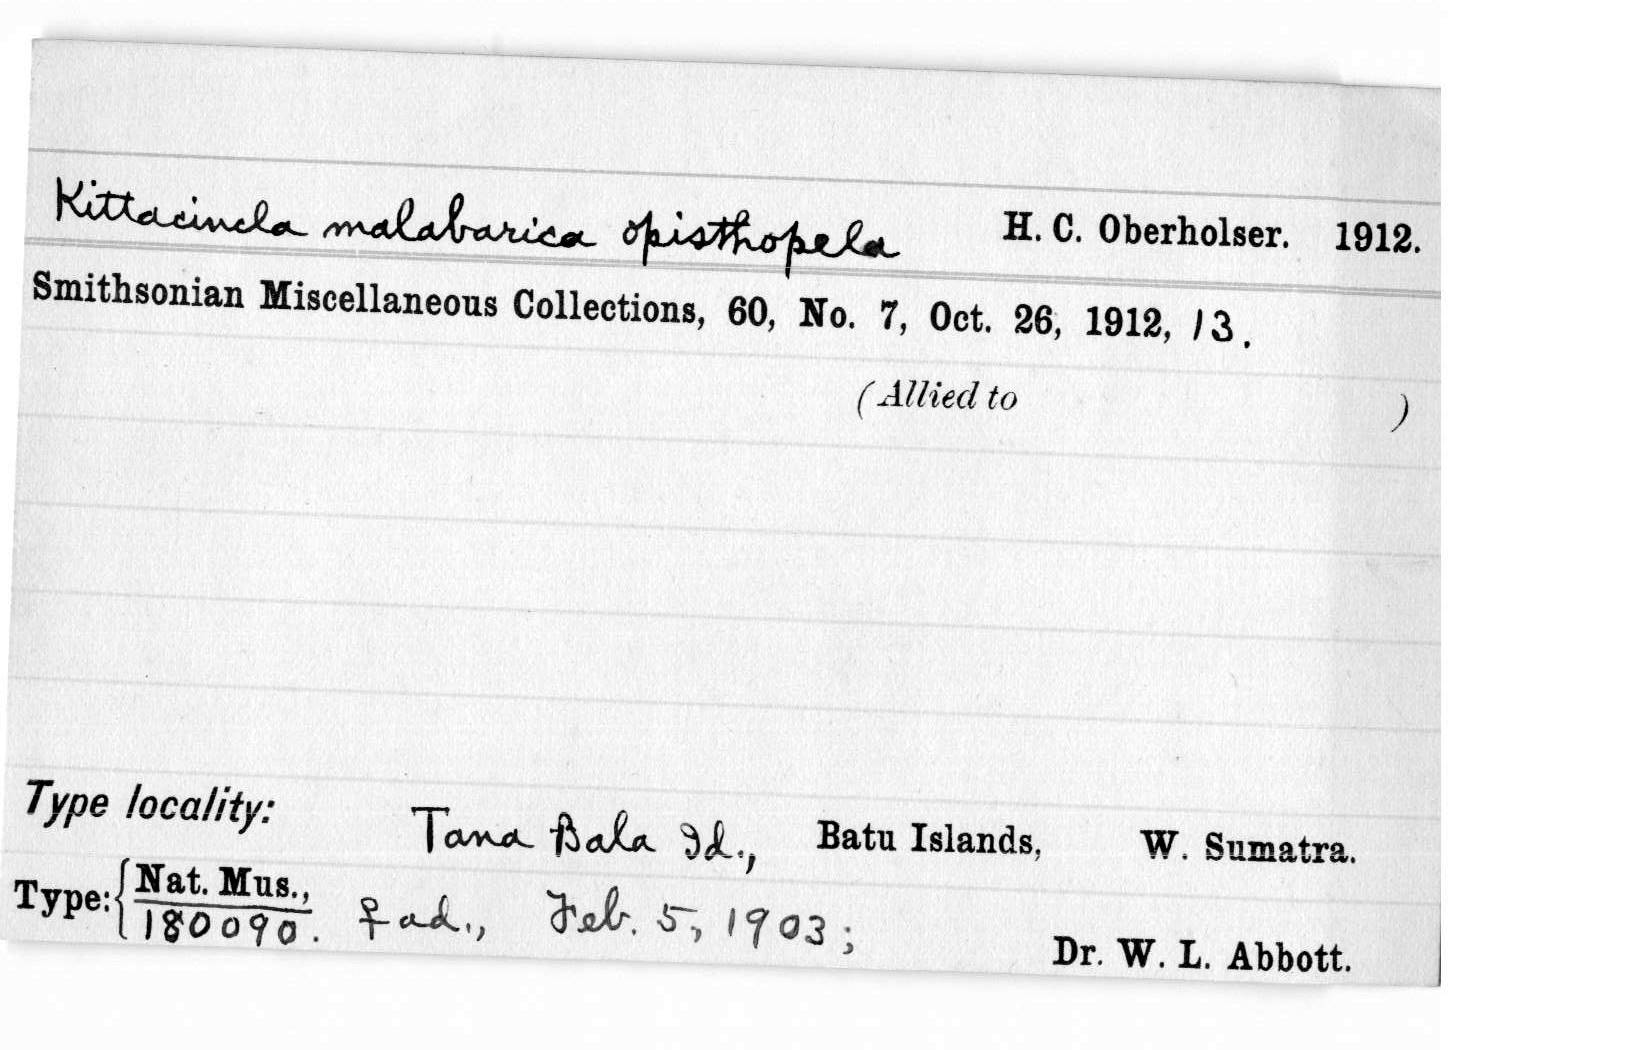 Kittacincla malabarica opisthopela H. C. Oberholser. 1912.
Smithsonian Miscellaneous Collections, 60, No. 7, Oct. 26, 1912, 13.
(Allied to )
Type locality: Tana Bala Id., Batu Islands, W. Sumatra.
Type: { Nat. Mus.,
180090. ♀ ad., Feb. 5, 1903; Dr. W. L. Abbott.